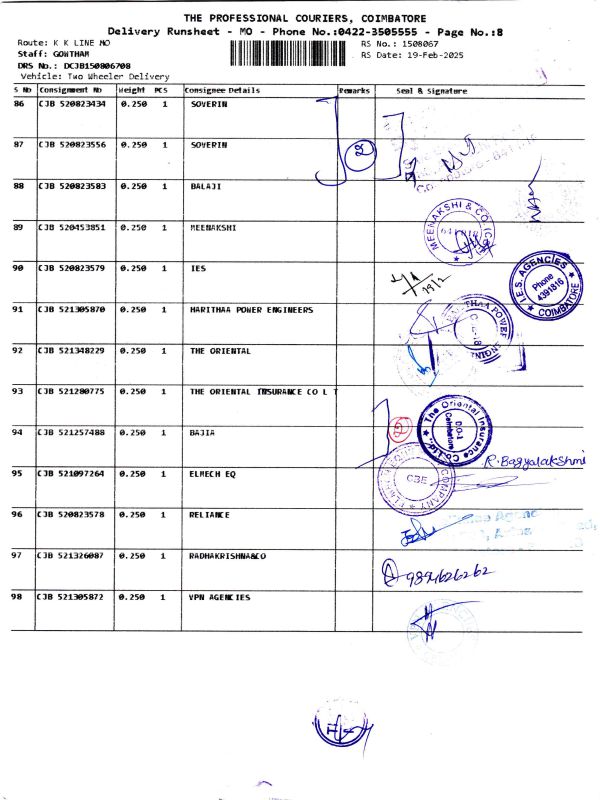 THE PROFESSIONAL COURIERS, COIMBATORE
Delivery Runsheet - MO - Phone No.:0422-3505555 - Page No.:8
Route: K K LINE MO
RS No.: 1508067
Staff: GOWTHAM
RS Date: 19-Feb-2025
DRS No.: DCJB150806708
Vehicle: Two Wheeler Delivery
S No Consignment No Weight PCS Consignee Details Remarks Seal & Signature
86 CJB 520823434 0.250 1 SOVERIN
87 CJB 520823556 0.250 1 SOVERIN
88 CJB 520823583 0.250 1 BALAJI
89 CJB 520453851 0.250 1 MEENAKSHI
MEENAKSHI & CO
90 CJB 520823579 0.250 1 IES
19/2
I.E.S. AGENCIES
Phone
4391816
COIMBATORE
91 CJB 521305870 0.250 1 HARITHAA POWER ENGINEERS
92 CJB 521348229 0.250 1 THE ORIENTAL
93 CJB 521280775 0.250 1 THE ORIENTAL INSURANCE CO L T
2
The Oriental Insurance Co. Ltd.
D.O-1
Coimbatore
94 CJB 521257488 0.250 1 BAJIA
R. Bagyalakshmi
95 CJB 521097264 0.250 1 ELMECH EQ
CBE
COMPANY
96 CJB 520823578 0.250 1 RELIANCE
97 CJB 521326087 0.250 1 RADHAKRISHNA&CO
9894626262
98 CJB 521305872 0.250 1 VPN AGENCIES